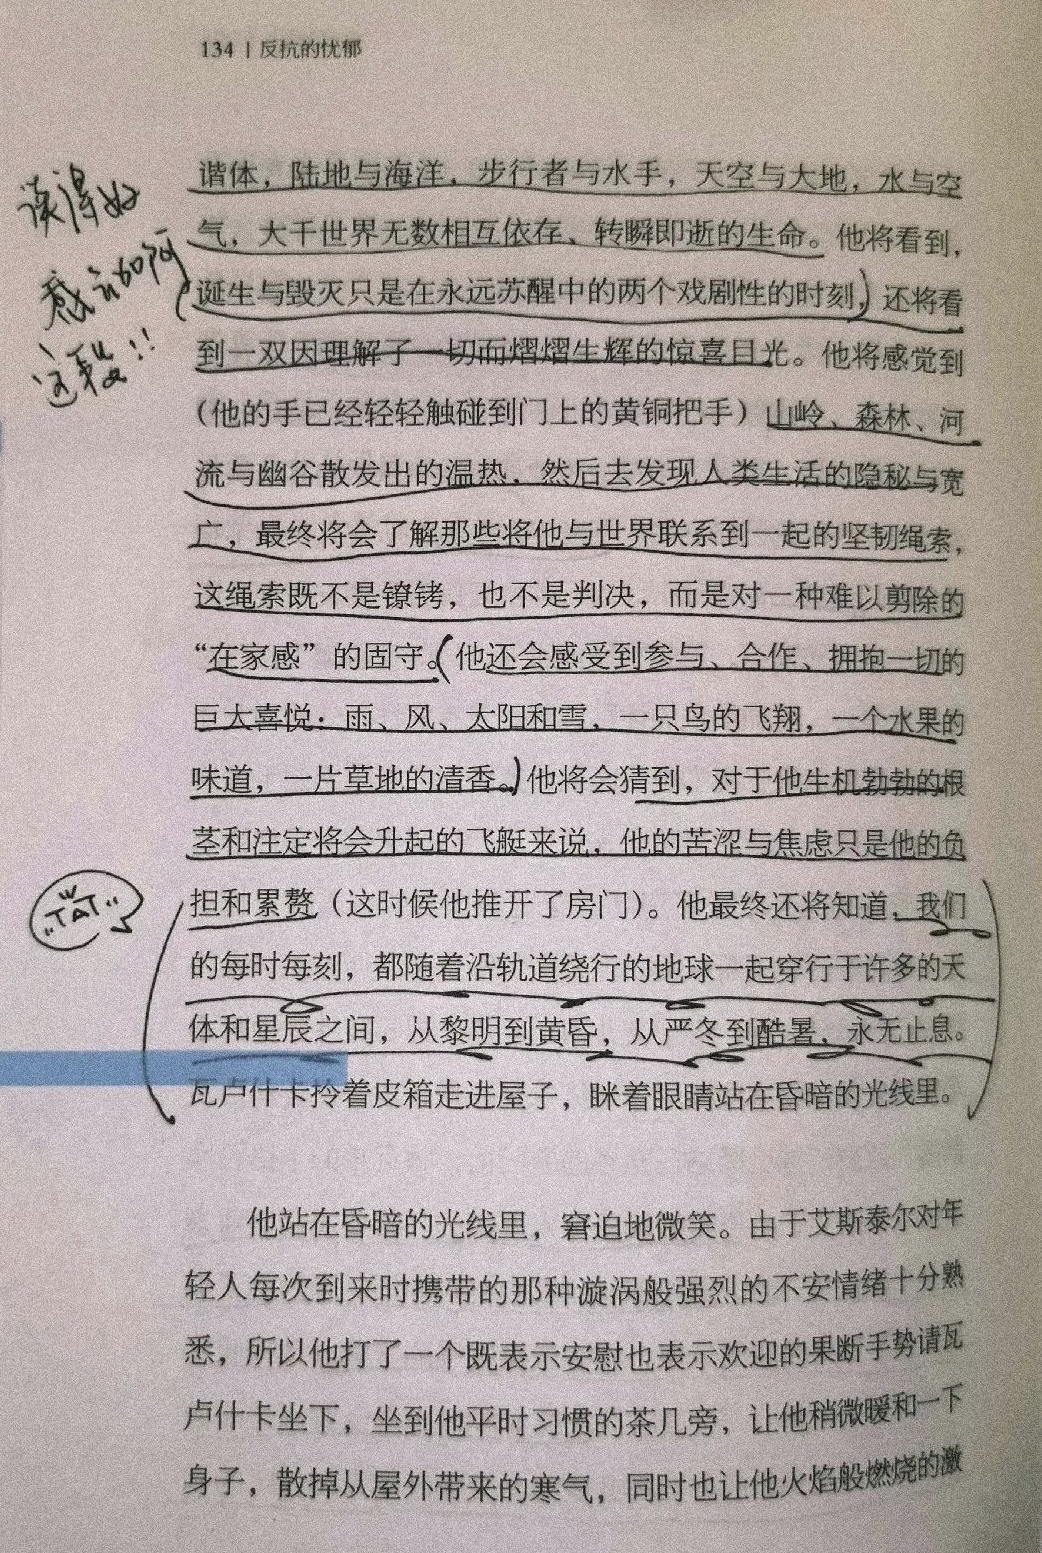 134 | 反抗的忧郁
谐体，陆地与海洋，步行者与水手，天空与大地，水与空
气，大千世界无数相互依存、转瞬即逝的生命。他将看到，
诞生与毁灭只是在永远苏醒中的两个戏剧性的时刻，还将看
到一双因理解了一切而熠熠生辉的惊喜目光。他将感觉到
（他的手已经轻轻触碰到门上的黄铜把手）山岭、森林、河
流与幽谷散发出的温热，然后去发现人类生活的隐秘与宽
广，最终将会了解那些将他与世界联系到一起的坚韧绳索，
这绳索既不是镣铐，也不是判决，而是对一种难以剪除的
“在家感”的固守。他还会感受到参与、合作、拥抱一切的
巨大喜悦：雨、风、太阳和雪，一只鸟的飞翔，一个水果的
味道，一片草地的清香。他将会猜到，对于他生机勃勃的根
茎和注定将会升起的飞艇来说，他的苦涩与焦虑只是他的负
担和累赘（这时候他推开了房门）。他最终还将知道，我们
的每时每刻，都随着沿轨道绕行的地球一起穿行于许多的天
体和星辰之间，从黎明到黄昏，从严冬到酷暑，永无止息。
瓦卢什卡拎着皮箱走进屋子，眯着眼睛站在昏暗的光线里。
他站在昏暗的光线里，窘迫地微笑。由于艾斯泰尔对年
轻人每次到来时携带的那种漩涡般强烈的不安情绪十分熟
悉，所以他打了一个既表示安慰也表示欢迎的果断手势请瓦
卢什卡坐下，坐到他平时习惯的茶几旁，让他稍微暖和一下
身子，散掉从屋外带来的寒气，同时也让他火焰般燃烧的激
读得好
感动啊
这段!!
TAT